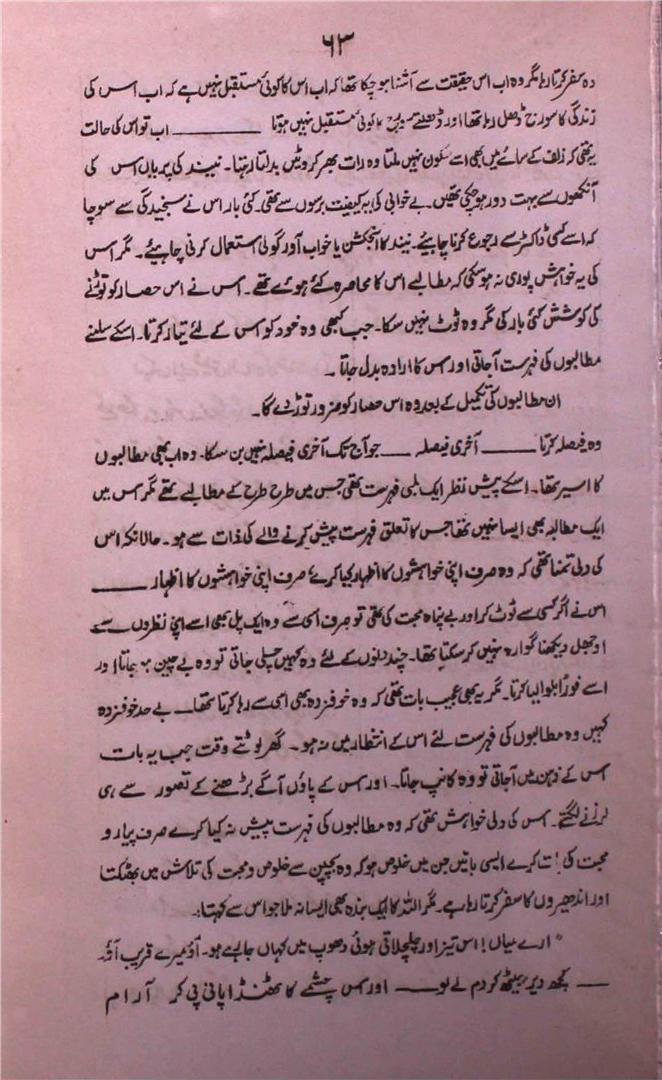 ۶۳
دہ سفر کرتا رہا مگر وہ اب اس حقیقت سے آشنا ہو چکا تھا کہ اب اس کا کوئی مستقبل نہیں ہے کہ اب اس کی
زندگی کا سورج ڈھل رہا تھا اور ڈھلتے سورج کا کوئی مستقبل نہیں ہوتا ـــــــــ اب تو اس کی حالت
یہ تھی کہ زلف کے سائے میں بھی اسے سکون نہیں ملتا وہ رات بھر کروٹیں بدلتا رہتا۔ نیند کی پریاں اس کی
آنکھوں سے بہت دور ہو چکی تھیں۔ بے خوابی کی یہ کیفیت برسوں سے تھی۔ کئی بار اس نے سنجیدگی سے سوچا
کہ اسے کسی ڈاکٹر سے رجوع کرنا چاہیئے۔ نیند کا انجکشن یا خواب آور گولی استعمال کرنی چاہیئے۔ مگر اس
کی یہ خواہش پوری نہ ہو سکی کہ مطالبے اس کا محاصرہ کئے ہوئے تھے۔ اس نے اس حصار کو توڑنے
کی کوشش کئی بار کی مگر وہ ٹوٹ نہیں سکا۔ جب کبھی وہ خود کو اس کے لئے تیار کرتا۔ اسکے سامنے
مطالبوں کی فہرست آجاتی اور اس کا ارادہ بدل جاتا۔
ان مطالبوں کی تکمیل کے بعد وہ اس حصار کو ضرور توڑ دے گا۔
وہ فیصلہ کرتا ـــــــ آخری فیصلہ ـــــ جو آج تک آخری فیصلہ نہیں بن سکا۔ وہ اب بھی مطالبوں
کا اسیر تھا۔ اسکے پیش نظر ایک لمبی فہرست تھی جس میں طرح طرح کے مطالبے تھے مگر اس میں
ایک مطالبہ بھی ایسا نہیں تھا جس کا تعلق فہرست پیش کرنے والے کی ذات سے ہو۔ حالانکہ اس
کی دلی تمنا تھی کہ وہ صرف اپنی خواہشوں کا اظہار کیا کرے صرف اپنی خواہشوں کا اظہار ـــــــ
اس نے اگر کسی سے ٹوٹ کر اور بے پناہ محبت کی تھی تو صرف اسی سے وہ ایک پل بھی اسے اپنی نظروں سے
اوجھل دیکھنا گوارہ نہیں کر سکتا تھا۔ چند دنوں کے لئے وہ کہیں چلی جاتی تو وہ بے چین ہو جاتا اور
اسے فوراً بلوا لیا کرتا۔ مگر یہ بھی عجیب بات تھی کہ وہ خوفزدہ بھی اسی سے رہا کرتا تھا۔ بے حد خوفزدہ
کہیں وہ مطالبوں کی فہرست لئے اس کے انتظار میں نہ ہو۔ گھر لوٹتے وقت جب یہ بات
اس کے ذہن میں آجاتی تو وہ کانپ جاتا۔ اور اس کے پاؤں آگے بڑھنے کے تصور سے ہی
لرزنے لگتے۔ اس کی دلی خواہش تھی کہ وہ مطالبوں کی فہرست پیش نہ کیا کرے صرف پیار و
محبت کی بات کرے ایسی باتیں جن میں خلوص ہو کہ وہ بچپن سے خلوص و محبت کی تلاش میں بھٹکتا
اور اندھیروں کا سفر کرتا رہا ہے۔ مگر اللہ کا ایک بندہ بھی ایسا نہ ملا جو اس سے کہتا:
"ارے میاں! اس تیز اور چلچلاتی ہوئی دھوپ میں کہاں جا رہے ہو۔ آؤ میرے قریب آؤ۔
ــــ کچھ دیر بیٹھ کر دم لے لو ــــ اور اس چشمے کا ٹھنڈا پانی پی کر آرام